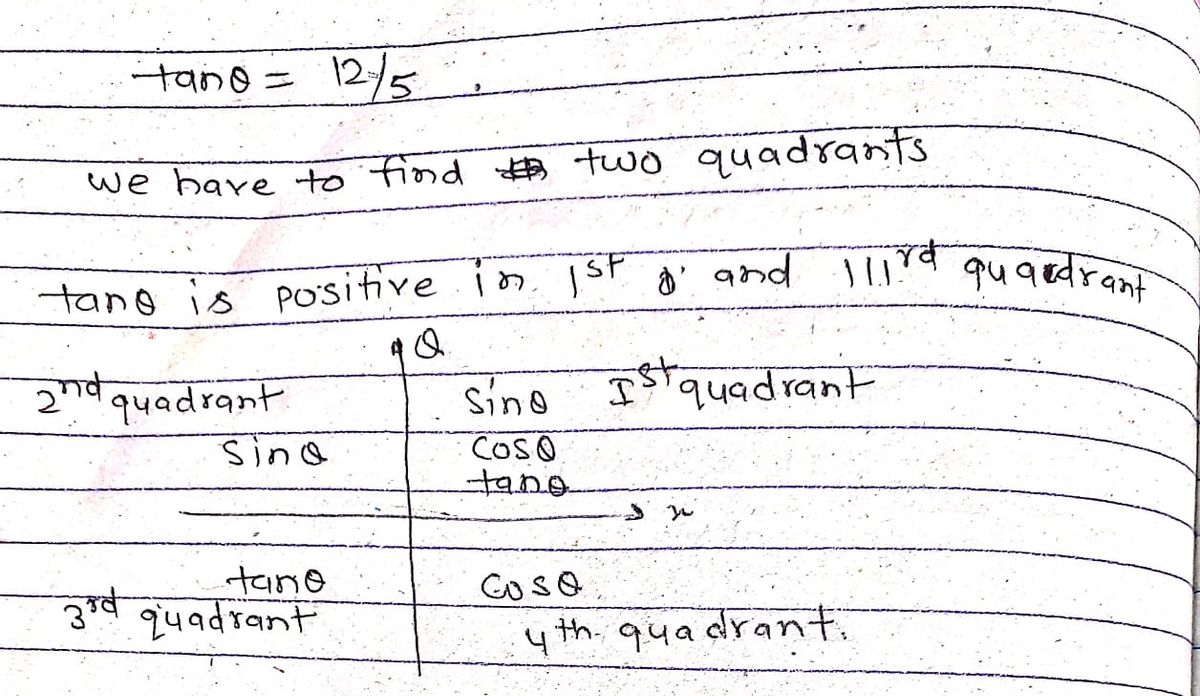 tanθ = 12/5 .
we have to find two quadrants
tanθ is positive in 1st and IIIrd quadrant
2nd quadrant
sinθ
sinθ Ist quadrant
cosθ
tanθ
x
tanθ
3rd quadrant
cosθ
4th quadrant.